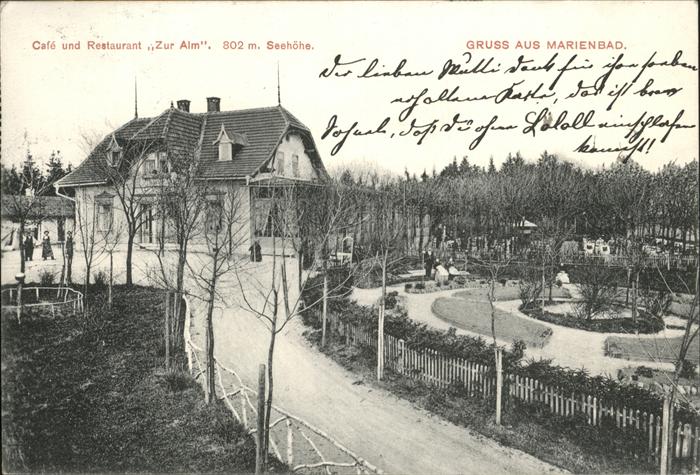 Café und Restaurant „Zur Alm". 802 m. Seehöhe.
GRUSS AUS MARIENBAD.
Der lieben Mutti Dank für ihre soeben
erhaltene Karte, das ist brav
daß Du ohne einschlafen
kannst!!